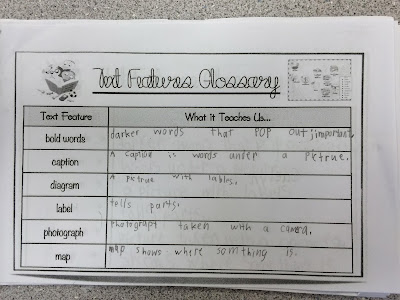 Text Features Glossary
Text Feature What it Teaches Us...
bold words darker words that POP out important.
caption A captive is words under a Pictrue.
diagram A Pictrue with lables.
label tells parts.
photograph Photograph taken with a camera.
map map shows where somthing is.